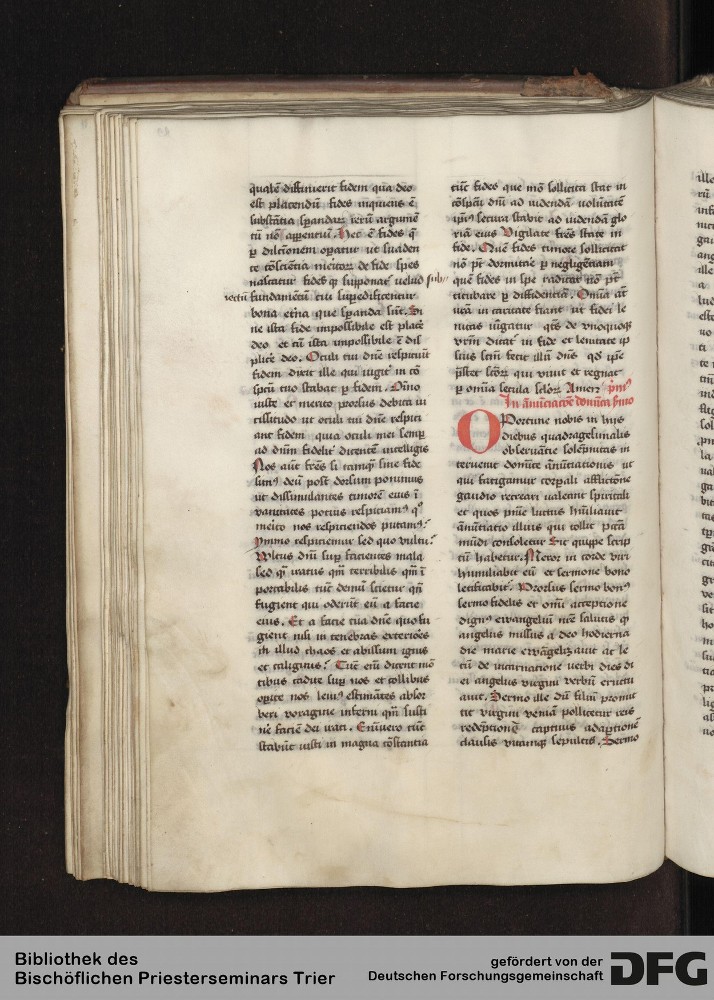 qualē diffinierit fidem qua deo
est placendū fides inquiens ē
substātia sꝑandarꝝ rerū argumē
tū nō apparentiū. Hec ē fides q̄
ꝑ dilcōnem oꝑatur ut suaden
te cōsciētia meritorꝝ de fide spes
nascatur fides qͣ supponatʳ uelud sub
iectū fundamētū cui suꝑedificentur
bona etīna que sꝑanda sūt. Si
ne ista fide impossibile est placē
deo et cū ista impossibile ē dis
plicē deo. Oculi tui dn̄e respiciūt
fidem dixit ille qui iugit͛ in cō
spcū tuo stabat ꝑ fidem. Oīno
iuste et merito prorsus debita ui
cissitudo ut oculi tui dn̄e respici
ant fidem quia oculi mei semꝑ
ad dn̄m fidelit͛ dicentē intelligis
Nos aūt frēs si tamqͣ sine fide
simꝰ deū post dorsum ponimus
ut dissimulantes timorē eius ī
uanitates potius respiciamꝰ qͦ
mērito nos respiciendos putamꝰ?
Ymmo respiciemur sed quo uultu?
Vultus dn̄i suꝑ facientes mala
sed qͥ iratus qͫ terribilis qͫ ī
portabilis tūc demū scietur qn̄
fugient qui oderūt eū a facie
eius. Et a facie tua dn̄e quo fu
gient nisi in tenebras exteriores
in illud chaos et abissum ignis
et caliginis? Tūc eīm dicent mō
tibus cadite suꝑ nos et collibus
oꝑite nos leuiꝰ estimātes absor
beri uoragine inferni qͫ susti
nē faciē dei irati. Enīuero tūc
stabūt iusti in magna cōstantia
tūc fides que mō sollicita stat in
cōspcū dn̄i ad uidendā uolūtatē
ip̄iꝰ secura stabit ad uidendā glo
riā eius Vigilate frēs state in
fide. Que fides timore sollicitat͛
nō pt̄ dormitare ꝑ negligētiam
que fides in spe radicat͛ nō pt̄
titubare ꝑ diffidenciā. Om̄ia aūt
ur̄a in caritate fiant ut fidei le
nitas iūgatur qͣt͛s de vnoquoqꝫ
vr̄m dicat͛ in fide et lenitate ip
sius scm̄ fecit illū dn̄s qd ip̄e
p̄stet scōrꝝ qui viuit et regnat
ꝑ om̄ia secula sclorꝝ Amen p̄mꝰ
In ānūciacōe domīca s̄mo
OPortune nobis in hijs
diebus quadragesimalis
obseruātie solēpnitas in
teruenit domīce ānūtiationis ut
qui fatigamur corꝑali afflictōne
gaudio recreari ualeant spiritali
et quos pn̄ie luctus hūiliauit
ānūtiatio illius qui tollit pccā
mūdi consoletur Sic quippe scrip
tū habetur. Meror in corde viri
humiliabit eū et sermone bono
letificabit͛. Prorsus sermo bonꝰ
sermo fidelis et om̄i acceptione
dignꝰ ewangeliū nr̄e salutis qͦ
angelus missus a deo hodierna
die marie ewāgelizauit at le
tū de incarnatione uerbi dies di
ei angelus virgini verbū eructu
auit. Sermo ille dū filiū promit
tit virgini veniā pollicetur reis
redēptionē captiuis adaꝑtionē
clausis vitamqꝫ sepultis. Sermo
Bibliothek des
Bischöflichen Priesterseminars Trier
gefördert von der
Deutschen Forschungsgemeinschaft
DFG